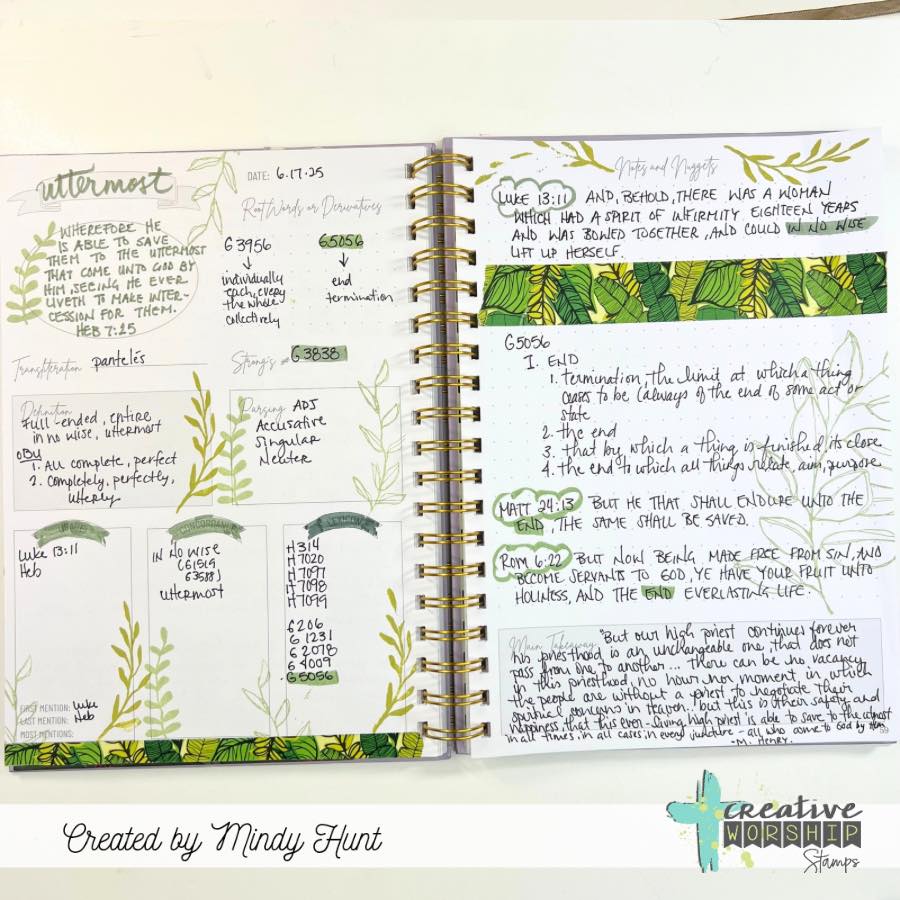 uttermost
WHEREFORE HE
IS ABLE TO SAVE
THEM TO THE UTTERMOST
THAT COME UNTO GOD BY
HIM, SEEING HE EVER
LIVETH TO MAKE INTER-
CESSION FOR THEM.
HEB 7:25
DATE: 6.17.25
Root Words or Derivatives
G3956
individually
each, every
the whole
collectively
G5056
end
termination
Transliteration pantelēs
Strong's # G3838
Definition
Full-ended, entire
in no wise, uttermost
OBU
1. All complete, perfect
2. Completely, perfectly,
utterly
Parsing ADJ
Accusative
Singular
Neuter
Luke 13:11
Heb
CONCORDANCE
IN NO WISE
(G1519
G3588)
uttermost
H314
H7020
H7097
H7098
H7099
G206
G1231
G2078
G4009
G5056
FIRST MENTION: Luke
LAST MENTION: Heb
MOST MENTIONS:
Notes and Nuggets
LUKE 13:11 AND, BEHOLD, THERE WAS A WOMAN
WHICH HAD A SPIRIT OF INFIRMITY EIGHTEEN YEARS
AND WAS BOWED TOGETHER, AND COULD IN NO WISE
LIFT UP HERSELF.
G5056
I. END
1. termination, the limit at which a thing
ceases to be (always of the end of some act or
state
2. the end
3. that by which a thing is finished, its close
4. the end to which all things relate, aim, purpose
MATT 24:13 BUT HE THAT SHALL ENDURE UNTO THE
END, THE SAME SHALL BE SAVED.
ROM 6:22 BUT NOW BEING MADE FREE FROM SIN, AND
BECOME SERVANTS TO GOD, YE HAVE YOUR FRUIT UNTO
HOLINESS, AND THE END EVERLASTING LIFE.
Main Takeaway "But our high priest continues forever
his priesthood is an unchangeable one, that does not
pass from one to another... there can be no vacancy
in this priesthood, no hour nor moment in which
the people are without a priest to negotiate their
spiritual concerns in heaven. but this is their safety and
happiness, that this ever-living high priest is able to save to the utmost
in all times, in all cases, in every juncture - all who come to God by him
-M. HENRY.
59
Created by Mindy Hunt
creative
WORSHIP
Stamps